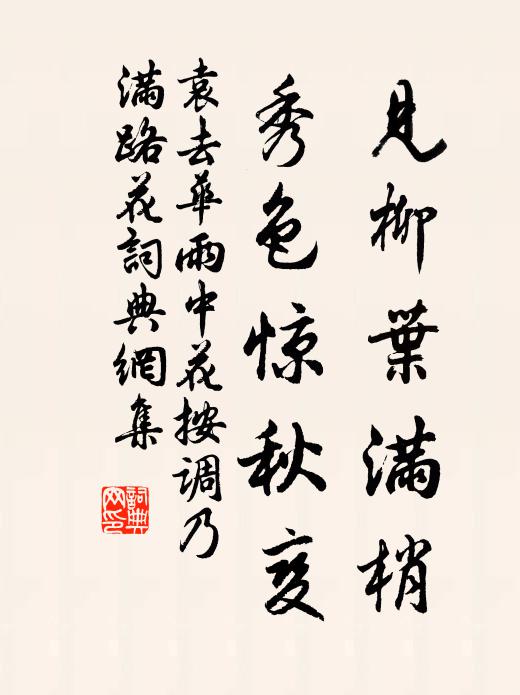 见柳葉满梢
秀色惊秋变
袁去華雨中花按调乃
满路花詞典網集
詞典网印